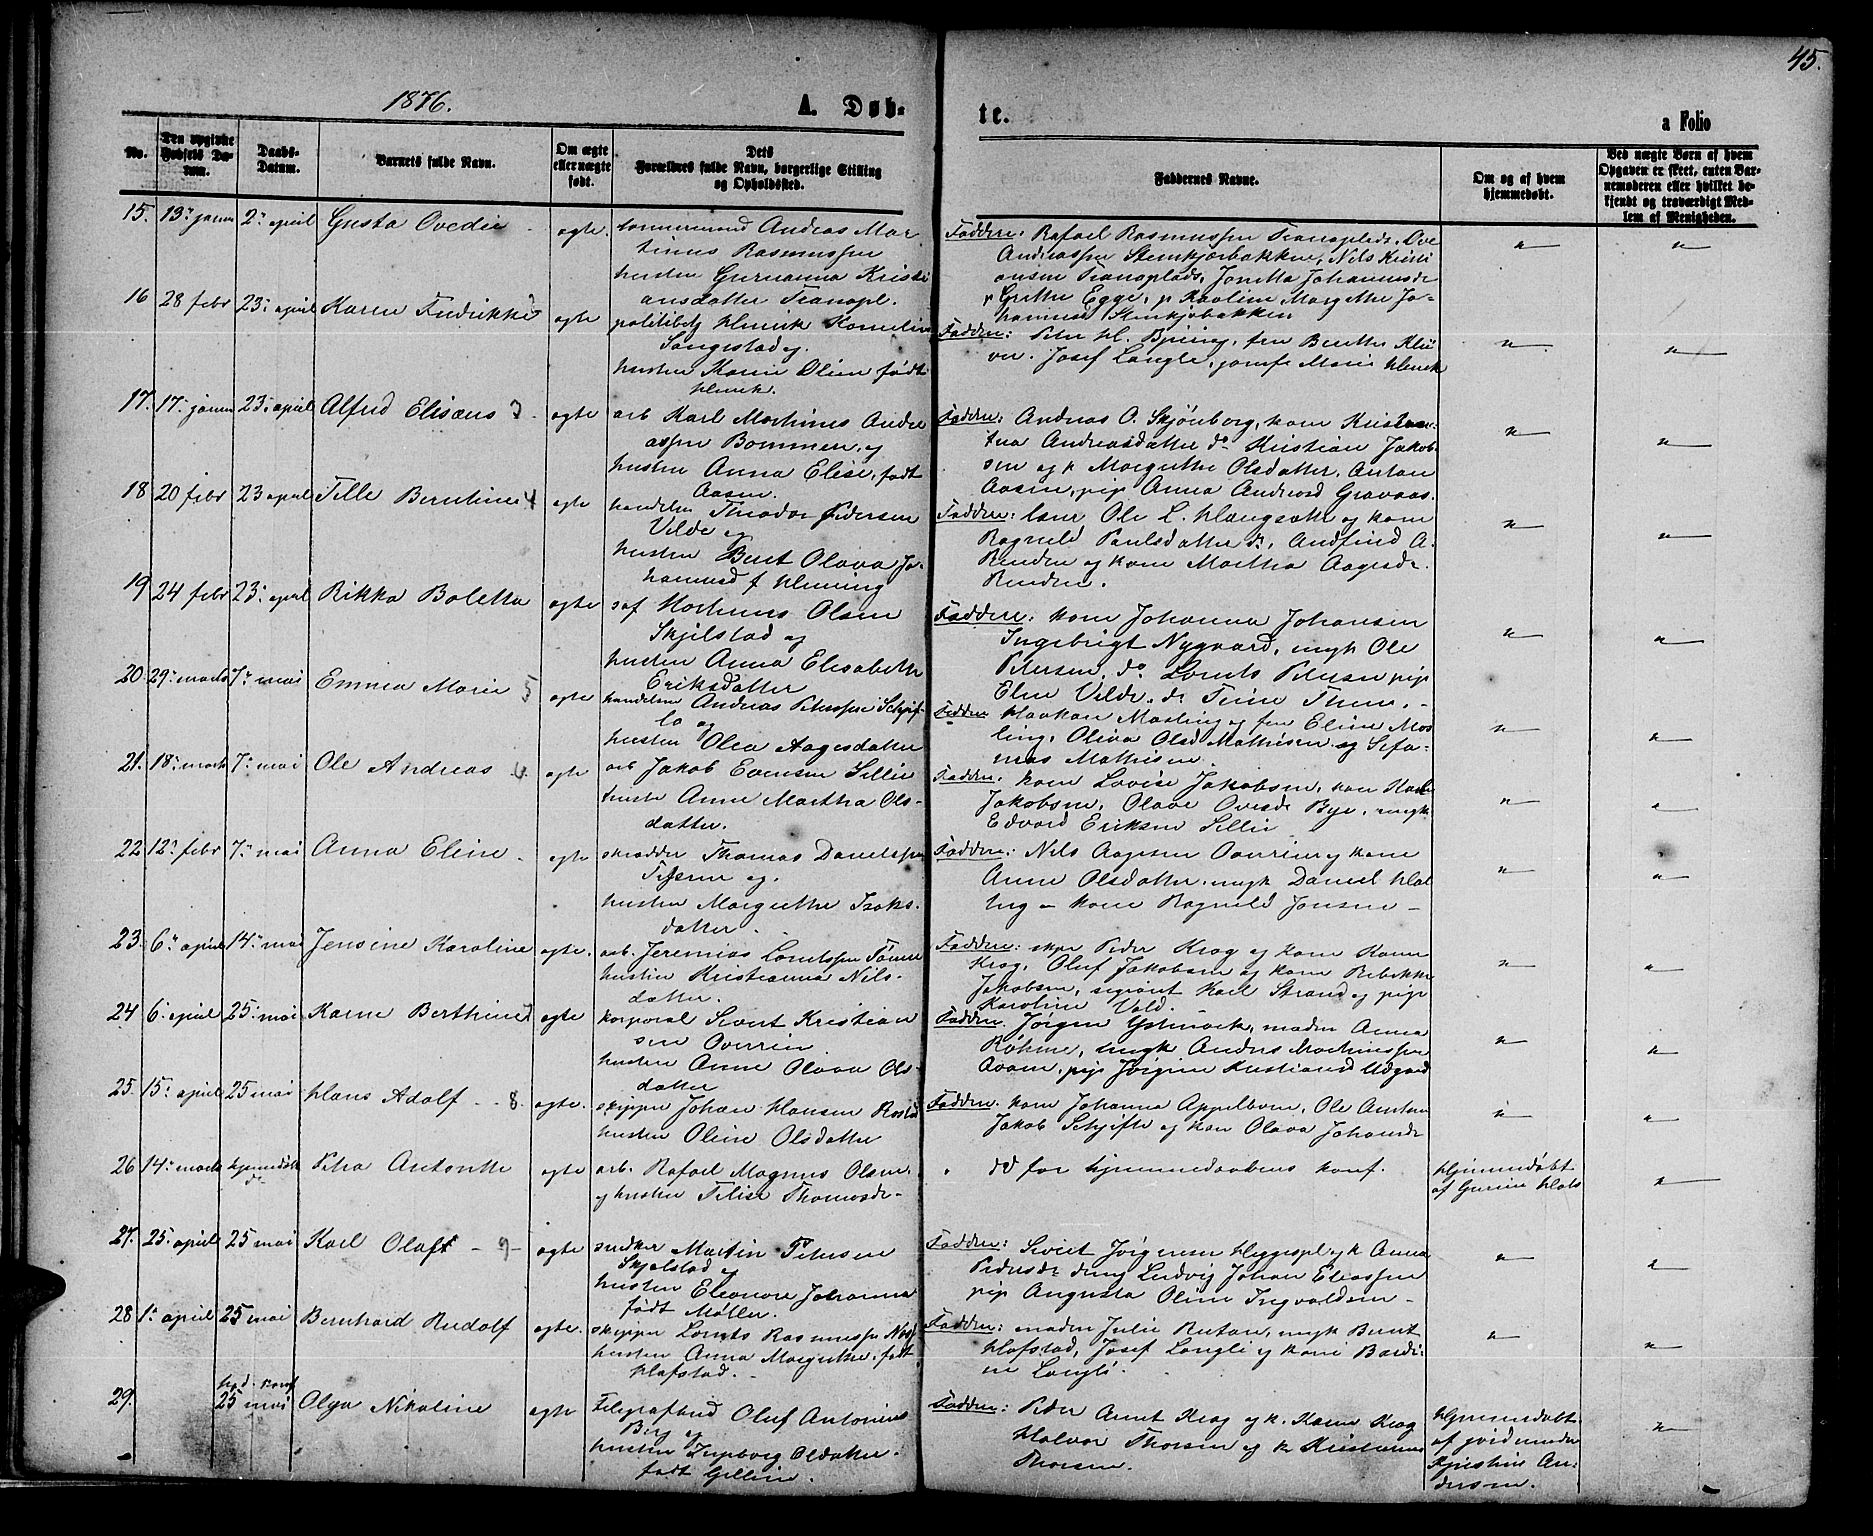 45.
1876.
A. Døb-
te.
a Folio
No.
Den opgivne Fødsels Datum.
Daabs-Datum.
Barnets fulde Navn.
Om ægte eller uægte født.
Dets Forældres fulde Navn, borgerlige Stilling og Opholdssted.
Faddernes Navne.
Om og af hvem hjemmedøbt.
Ved uægte Børn af hvem Opgaven er skeet, enten Barnemoderen eller hvilket bekjendt og troværdigt Medlem af Menigheden.
15. 13. januar 2. april Gusta Ovedie ægte.
Andreas Mar
tinus Rasmussen
hustru Gurianna Kristi
ansdatter Tranapl.
Faddere: Rafael Rasmussen Tranaplads, Ove
Andreassen Steinkjerbakken, Nils Kristi
ansen Tranaplads, Jonetta Johannesdr
Grethe Egge, p Karoline Margrethe Jo-
hannesd Steinkjerbakken
16 28 febr 23. april Karen Fredrikke ægte
politibetj Henrik Kornelius
og
hustru Karen Oline født
Henrik.
Faddere: Peter H. Bjerring, fru Berethe Klü
ver. Josef Langli, jomfr Marie Henrik
17. 17. januar 23. april Alfred Elisæus 3 ægte
arb Karl Martinus Andre
assen Bommen, og
hustru Anna Elise, født
Aasen.
Faddere: Andreas O. Skjønborg, kone
Andreasdatter do Kristian Jakob
sen og k Margrethe Olsdatter, Anton
Aasen, pige Anna Andreasd Gravaas.
18 20 febr 23 april Tille Bernhine 4 ægte
handelsm Theodor Pedersen
Velde og
hustru Berit Olava Jo-
hannesd f Heming
Faddere: Ole L. og kone
Ragnild Paulsdatter do, Andfind A.
og kone Martha Aagesdr
19 24 febr 23. april Rikka Boletta ægte
Martinus Olsen
Skjelstad og
hustru Anna Elisabeth
Eriksdatter
Faddere: kone Johanna Johansen
Ingebrigt Nygaard, ungk Ole
Petersen, do Lorents Petersen pige
Eline Velde. do
20. 29. marts 7. mai Emma Marie 5 ægte
handelsm Andreas Peterssen Schjef-
lo og
hustru Olea Aagesdatter
Faddere Haakon Masling og fru Eline Mas
ling, Oliva Olsd Mathisen og
Mathisen
21. 18. marts 7. mai Ole Andreas 6. ægte
arb Jakob Evensen Sellie
hustru Anne Martha Ols-
datter.
Faddere: kone Lovise Jakobsen, kone
Jakobsen, Olava Ovesdr Bye, ungk
Edvard Eriksen Sellie
22 12. febr 7. mai Anna Eline ægte
skrædder Thomas Danielssen
og
hustru Margrethe Isaks-
datter.
Faddere: Nils Aagesen og kone
Anne Olsdatter, ungk Daniel
kone Ragnild Jensen
23. 6. april 14. mai Jensine Karoline ægte.
arb. Jeremias Lorntssen
hustru Kristianna Nils-
datter.
Faddere: Peder Krog og kone Karen
Krog, Oluf Jakobsen og kone Rebekke
Jakobsen, Karl Strand og pige
Karoline Vold.
24 6. april 25. mai Karen Berthine 7 ægte
korporal Sivert Kristian
sen Overrein
hustru Anne Olava Ols-
datter
Faddere. Jørgen Ystmark, madm Anna
Bøhme, ungk Anders Martinussen
pige Jørgine Kristiansd Udgaard
25. 15. april 25 mai Hans Adolf 8. ægte.
skipper Johan Hansen
hustru Oline Olsdatter
Faddere. kone Johanna Appelbom, Ole
Jakob Schjefte og kone Olava Johansdr
26 14. marts hjemmedøbt Petra Antonette ægte
arb. Rafael Magnus Olsen
og hustru Thomasdr
dd før hjemmedaabens konf.
Hjemmedøbt
af
27. 25. april 25 mai Karl Olaft 9 ægte
snedker Martin Petersen
Skjelstad og
hustru Eleonore Johanna
født Møller.
Faddere: Sivert Jørgensen Heggespl og k Anna
Pedersdr dreng Ludvig Johan Eliassen
pige Augusta Oline Ingvaldsen
28 1. april 25 mai Bernhard Rudolf ægte.
skipper Lornts Rasmussen
hustru Anna Margrethe, født
Hafstad.
Faddere: madm Julie ungk Bernt
Hofstad, Josef Langli og kone
Langli.
29. 25 mai Olga Nikoline ægte
Telegrafbud Oluf Antonius
Berg og
hustru Ingeborg Olsdatter
født
Faddere: Peder Arnt Krog og k. Karen Krog
Halvor Thorsen og k
Thorsen.
Hjemmedøbt
af jordmoder
An-
dersen.